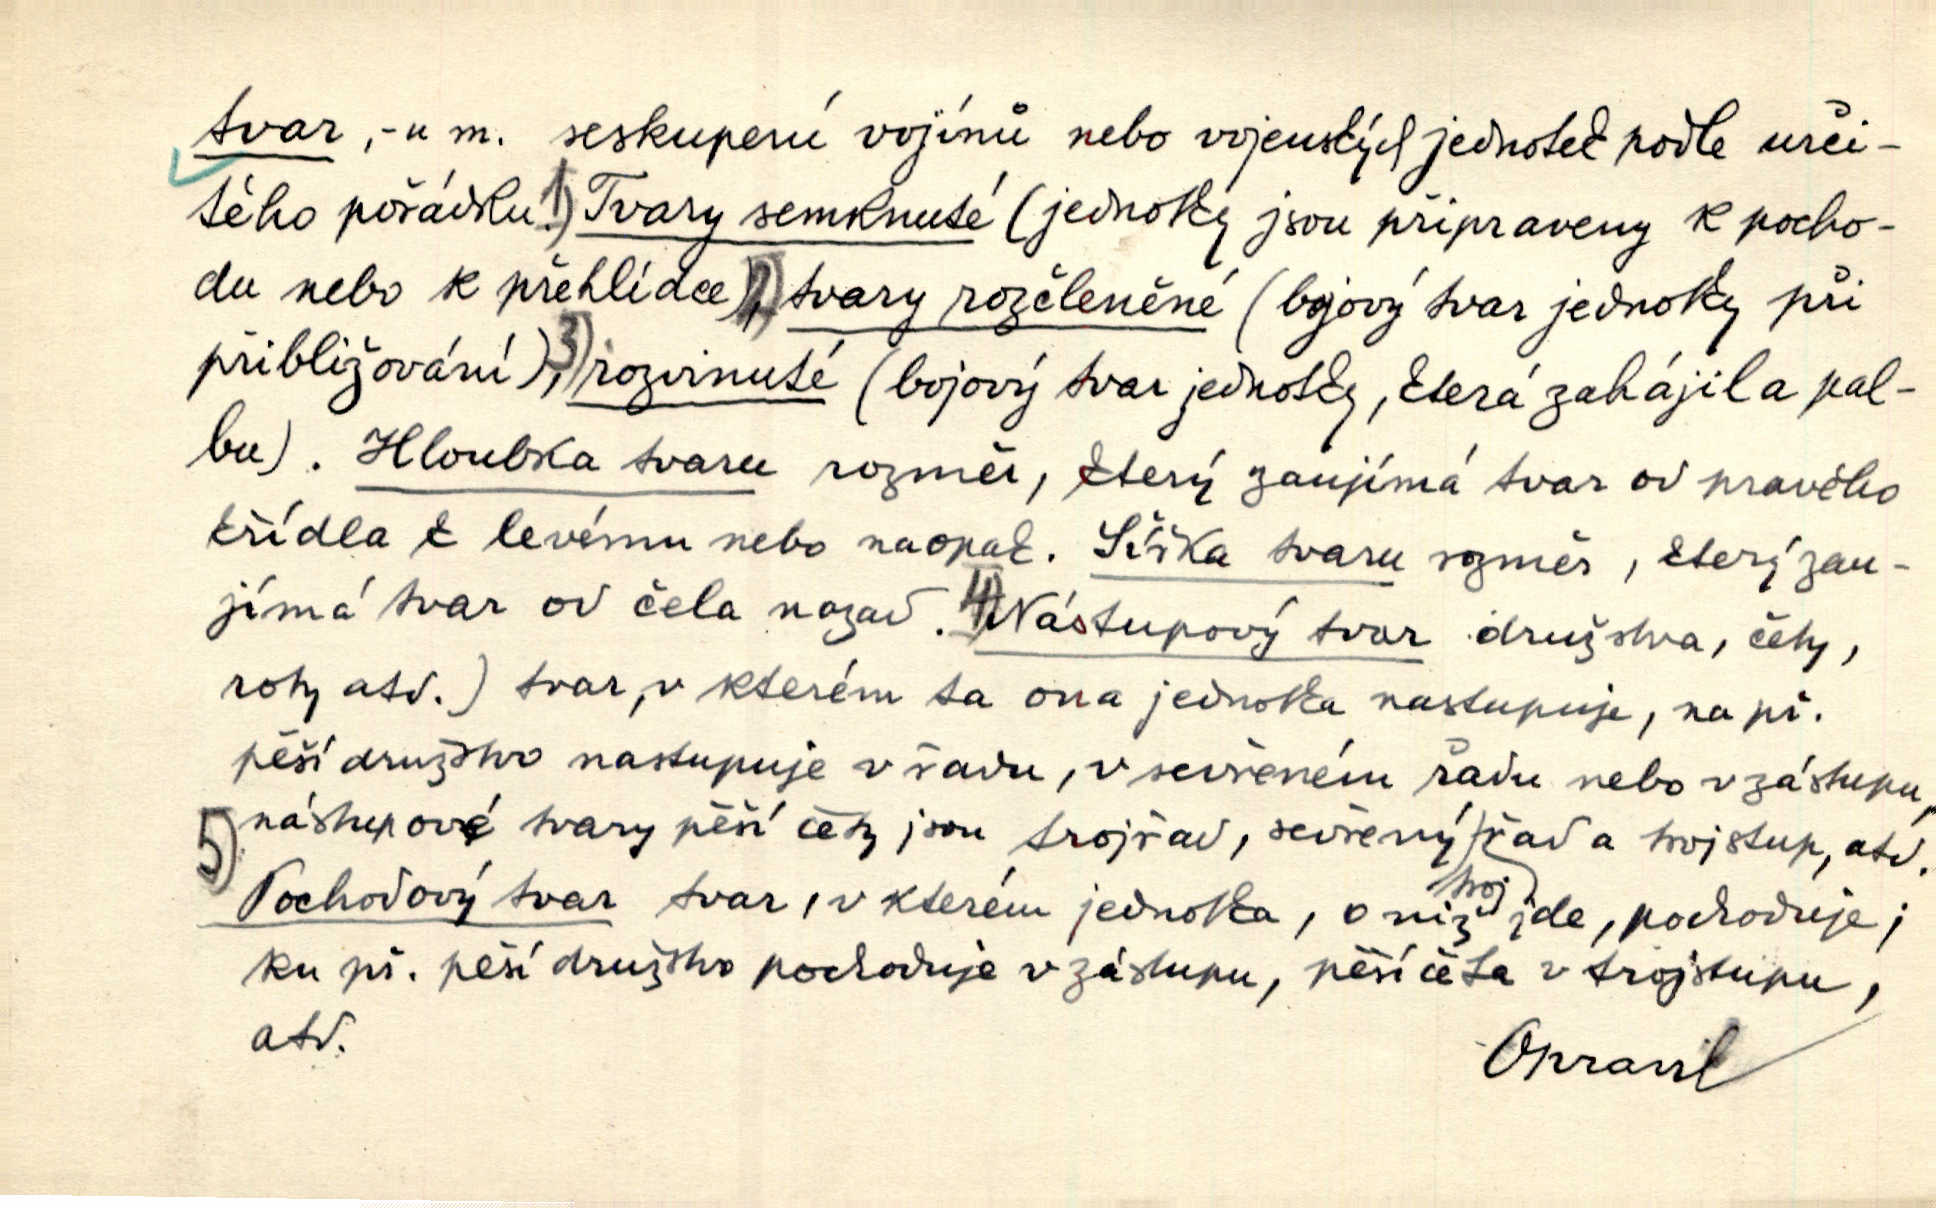 tvar, -u m. seskupení vojínů nebo vojenských jednotek podle urči-
tého pořádku. 1) Tvary semknuté (jednotky jsou připraveny k pocho-
du nebo k přehlídce), 2) tvary rozčleněné (bojový tvar jednotky při
přibližování), 3) rozvinuté (bojový tvar jednotky, která zahájila pal-
bu). Hloubka tvaru rozměr, který zaujímá tvar od pravého
křídla k levému nebo naopak. Šířka tvaru rozměr, který zau-
jímá tvar od čela nazad. 4) Nástupový tvar družstva, čety,
roty atd.) tvar, v kterém ta ona jednotka nastupuje, na př.
pěší družstvo nastupuje v řadu, v sevřeném řadu nebo v zástupu,
5) nástupové tvary pěší čety jsou trojřad, sevřený trojřad a trojstup, atd.
Pochodový tvar tvar, v kterém jednotka, o niž jde, pochoduje;
ku př. pěší družstvo pochoduje v zástupu, pěší četa v trojstupu,
atd.
Opravil